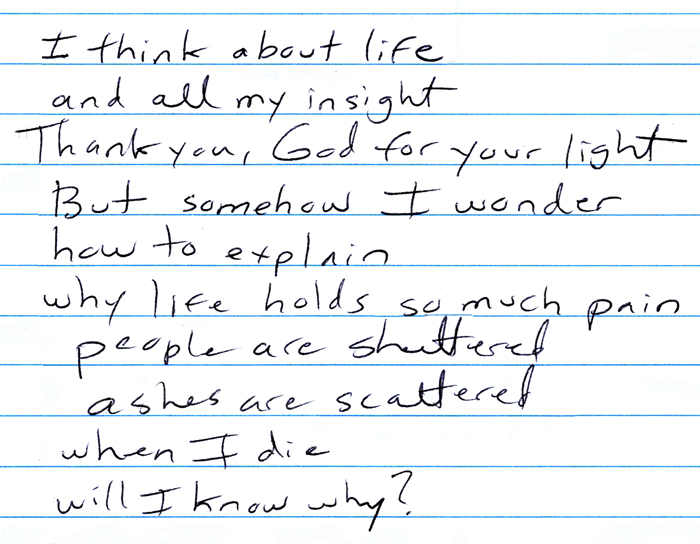 I think about life
and all my insight
Thank you, God for your light
But somehow I wonder
how to explain
why life holds so much pain
people are shattered
ashes are scattered
when I die
will I know why?